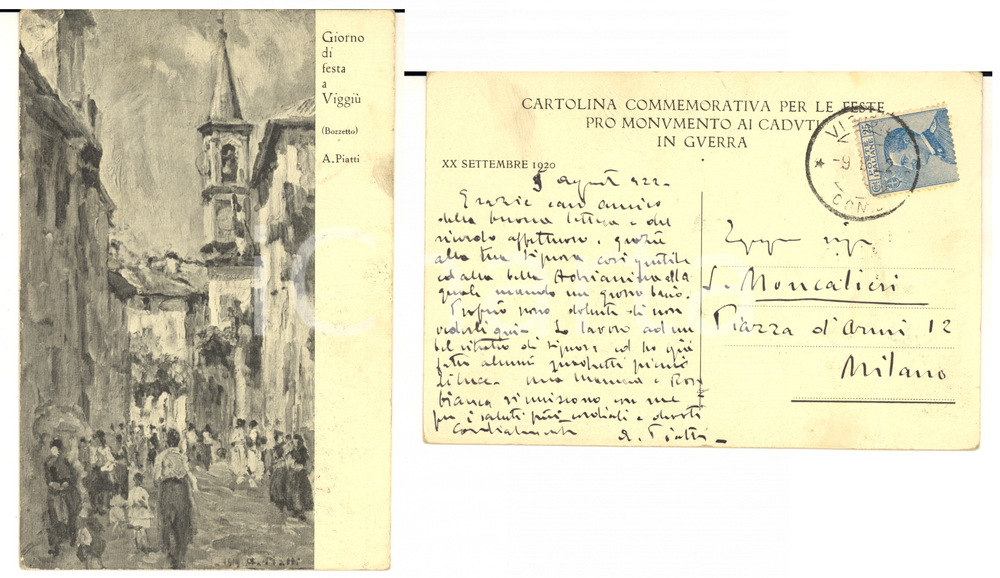 Giorno
di
festa
a
Viggiù
(Bozzetto)
A. Piatti
1919 A. Piatti
CARTOLINA COMMEMORATIVA PER LE FESTE
PRO MONVMENTO AI CADVTI
IN GVERRA
XX SETTEMBRE 1920
9 agosto 922.
Grazie caro amico
della buona lettera e del
ricordo affettuoso. grazie
alla tua Signora così gentile
ed alla bella Adrianina alla
quale mando un grosso bacio.
Proprio sono dolente di non
vederli qui. Io lavoro ad un
bel ritratto di Signora ed ho già
fatto alcuni
mia Mamma e
bianca si uniscono con me
per i saluti più cordiali e devoti
Cordialmente A. Piatti
S. Moncalieri
Piazza d'Armi 12
Milano
POSTE
ITALIANE